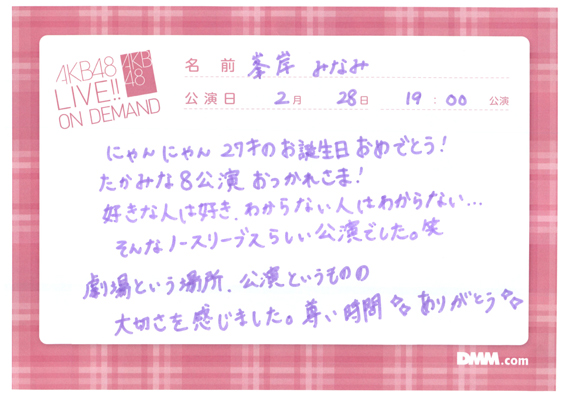 AKB48
LIVE!!
ON DEMAND
AKB
48
名 前 峯岸 みなみ
公演日 2月 28日 19:00 公演
にゃんにゃん 27才のお誕生日おめでとう!
たかみな8公演 おつかれさま!
好きな人は好き、わからない人はわからない…
そんなノースリーブスらしい公演でした。笑
劇場という場所、公演というものの
大切さを感じました。尊い時間 ありがとう
DMM.com